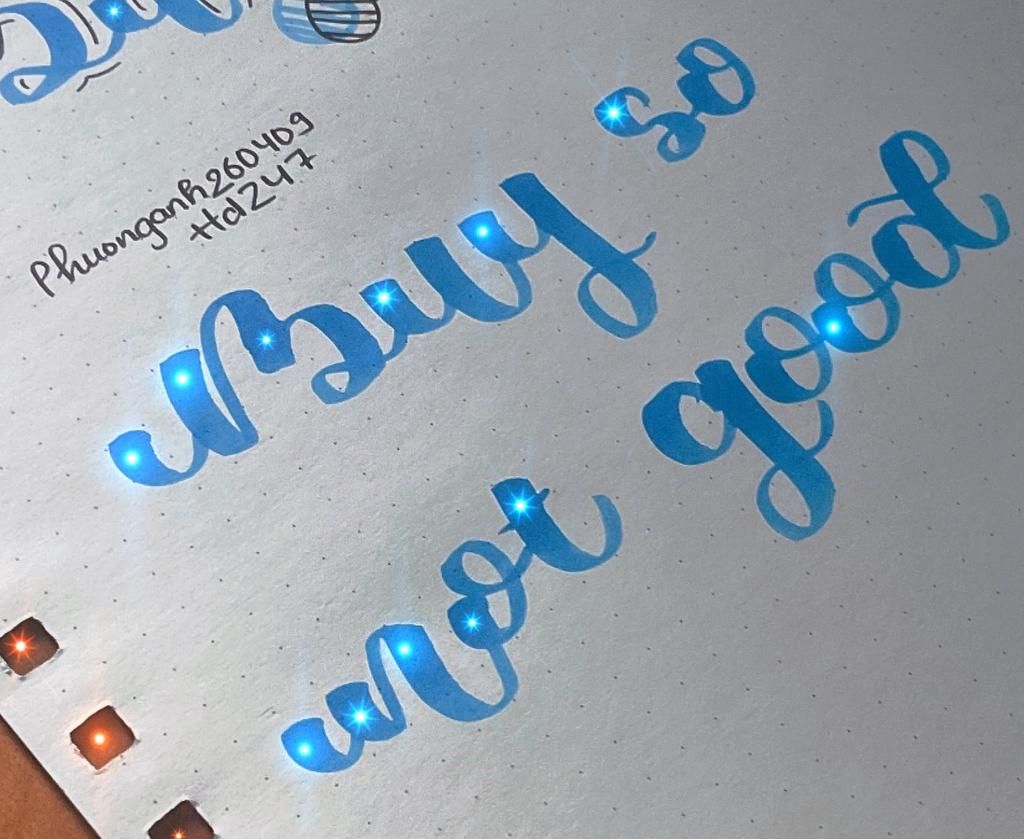 Phuonganh260409
Hd247
Buy so
not good